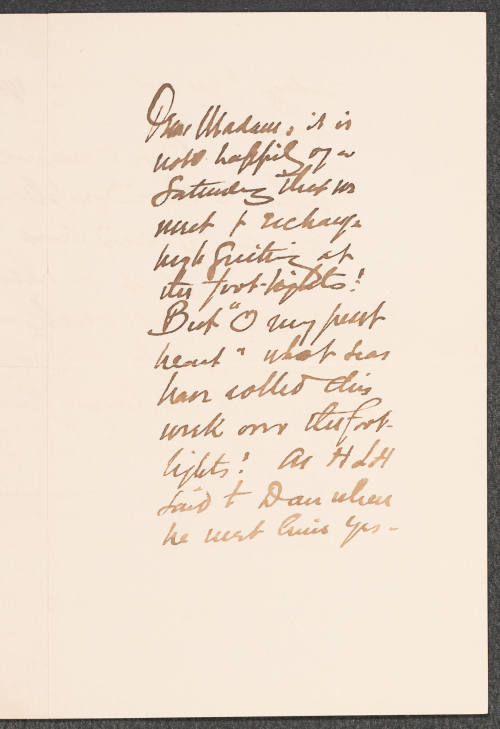 Dear Madam, it is
not happily of a
Saturday that we
meet to exchange
high greeting at
the foot-lights!
But "O my
heart" what seas
have rolled this
week over the foot-
lights! As H L H
said to Dan when
he met him yes-